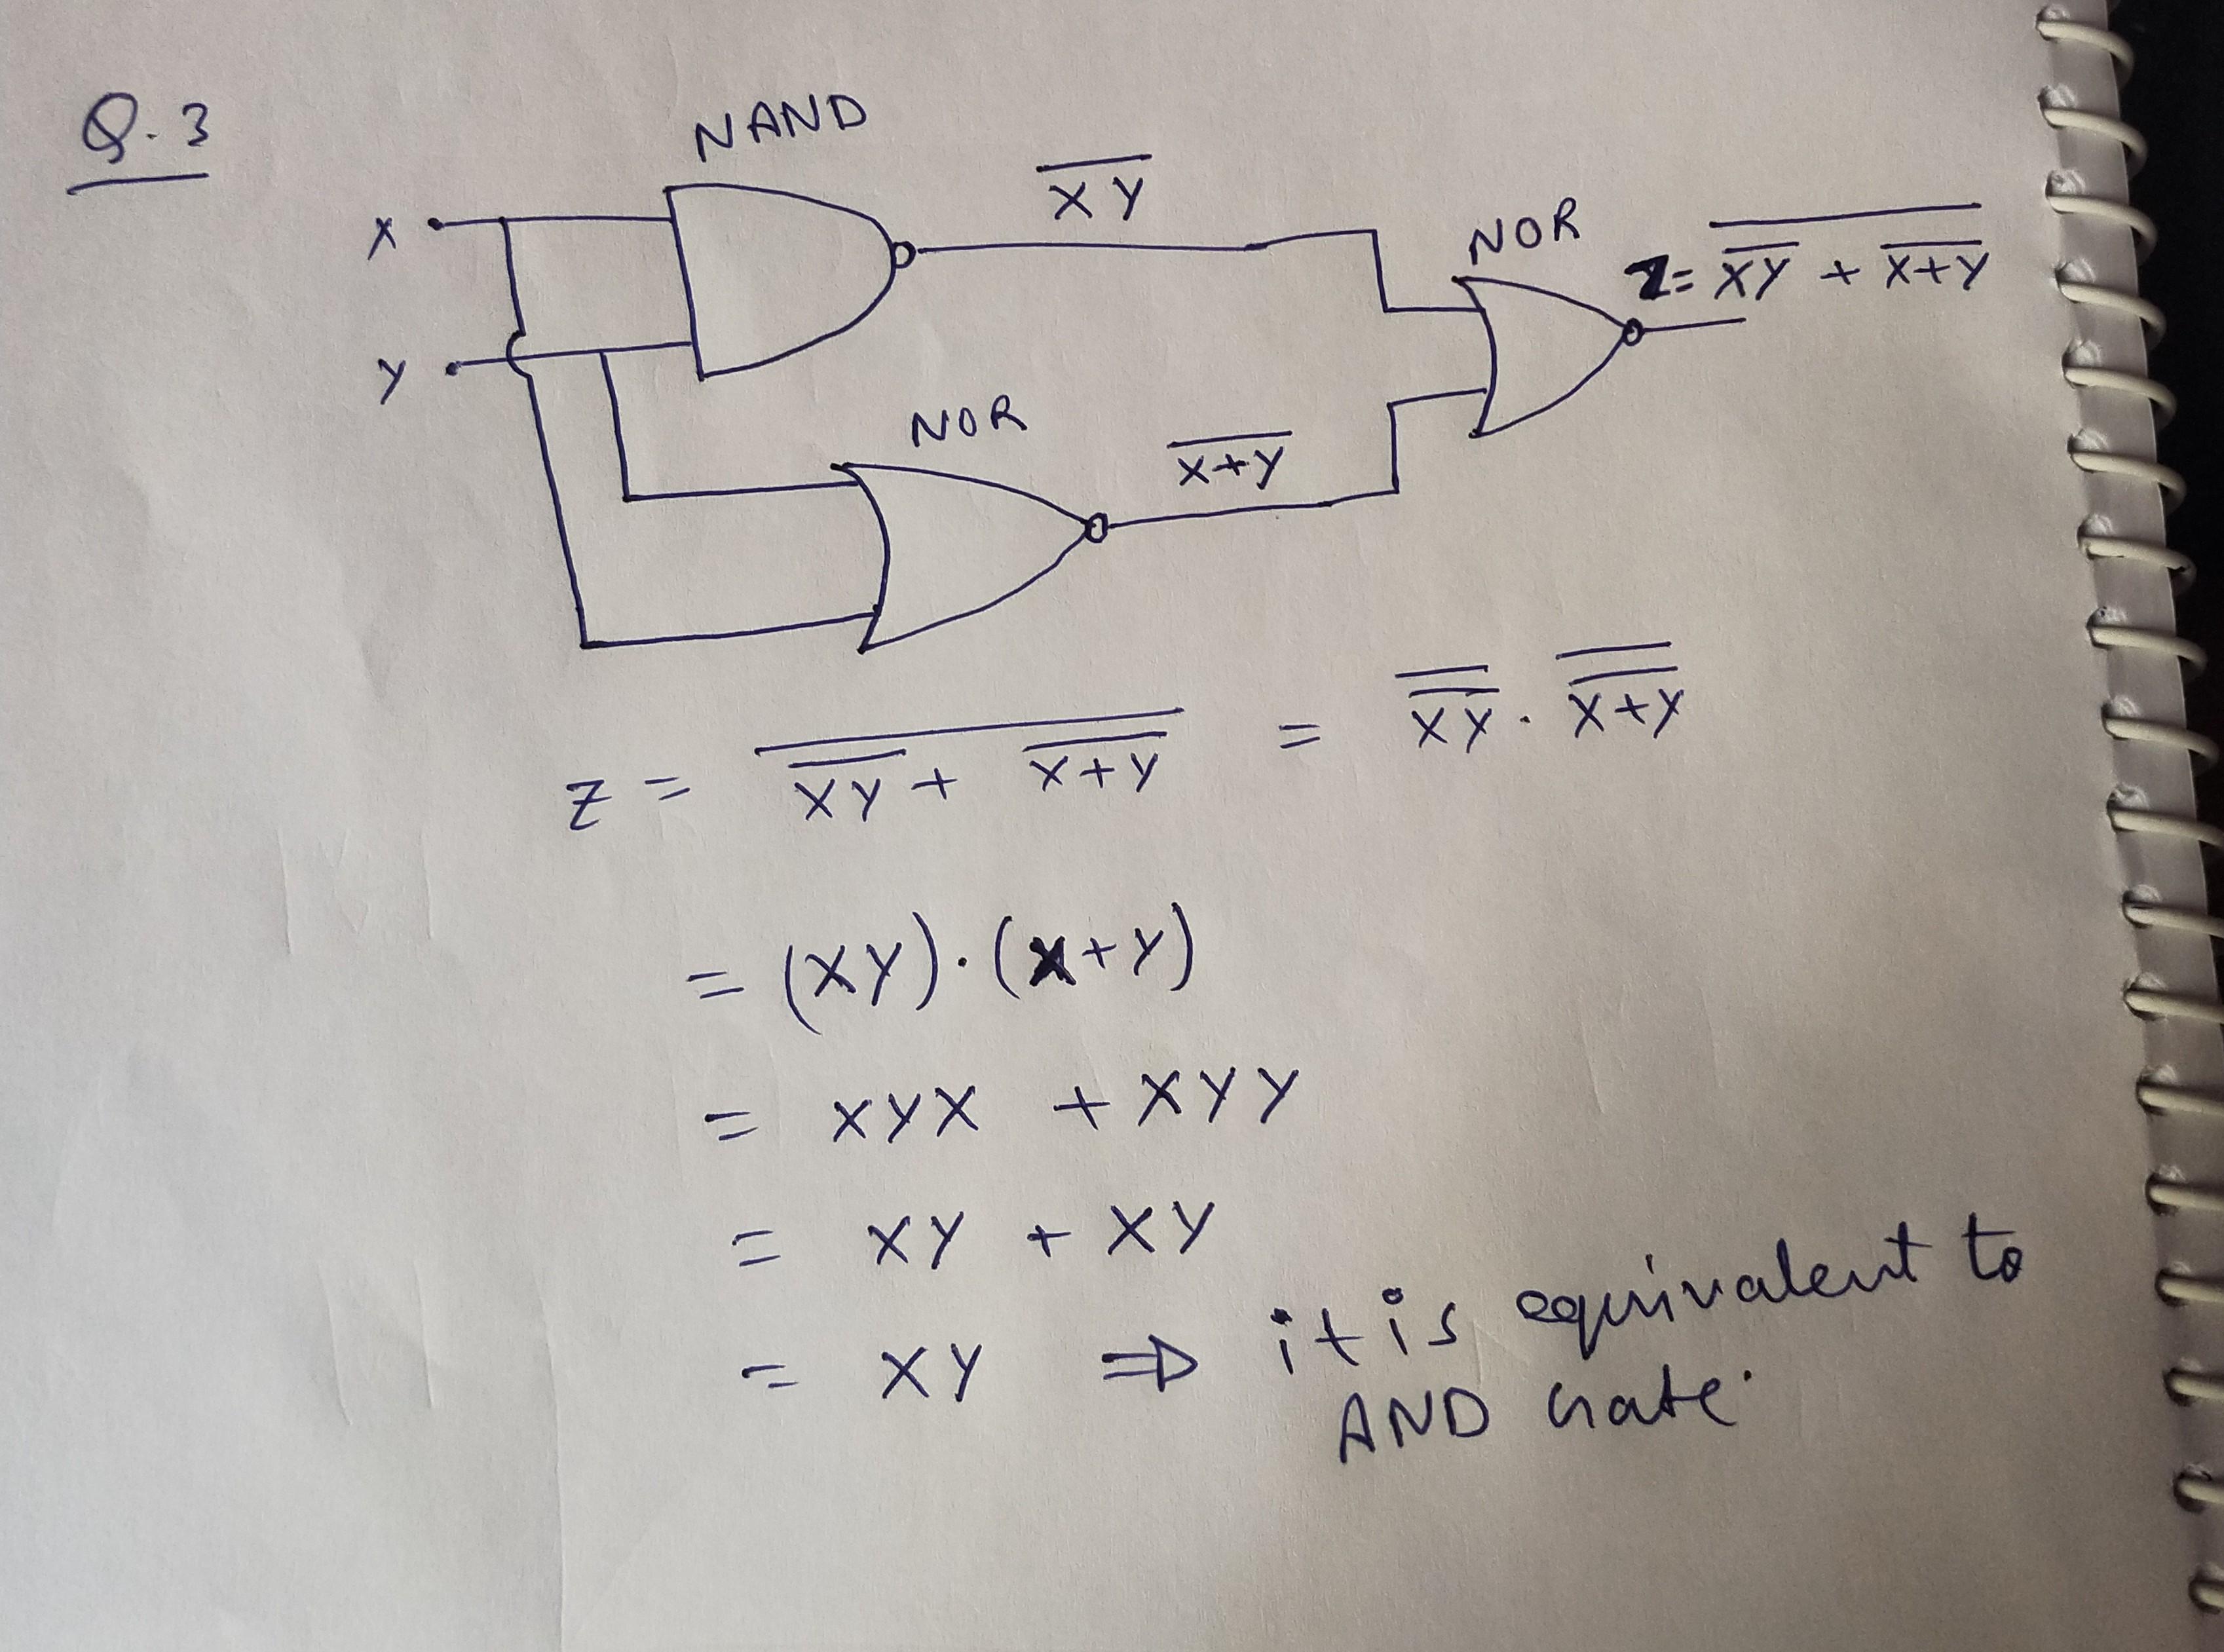 Q.3
NAND
X
X̅Y̅
NOR
Z = \overline{\overline{XY} + \overline{X+Y}}
Y
NOR
\overline{X+Y}
Z = \overline{\overline{XY} + \overline{X+Y}} = \overline{\overline{XY}} . \overline{\overline{X+Y}}
= (XY).(X+Y)
= XYX + XYY
= XY + XY
= XY ⇒ it is equivalent to
AND Gate.